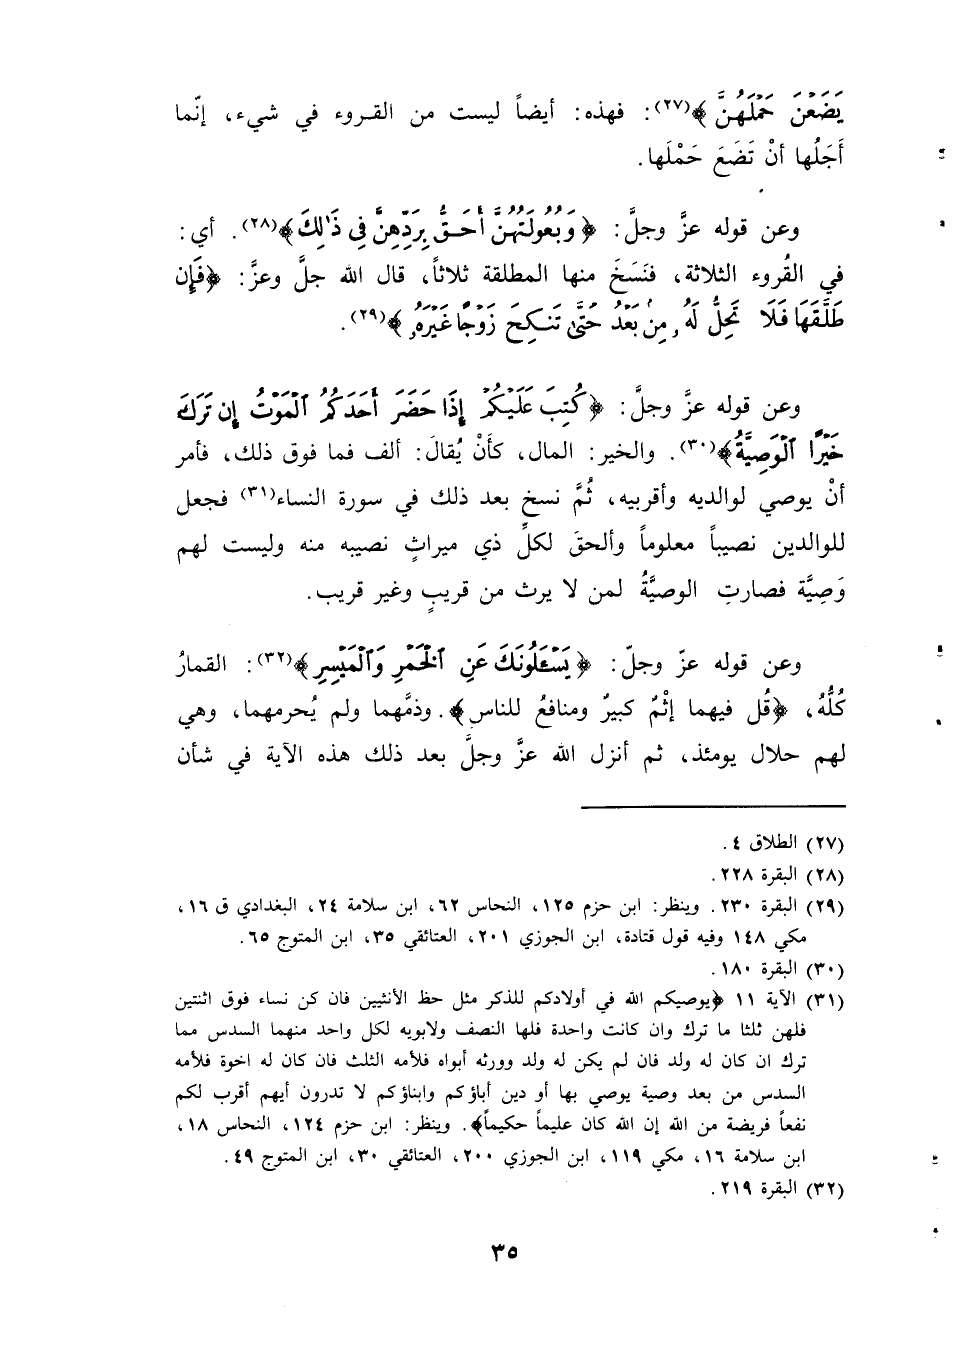 يَضَعْنَ حَمْلَهُنَّ﴾(٢٧): فهذه: أيضاً ليست من القروء في شيء، إنّما
أَجَلُها أنْ تَضَعَ حَمْلَها.
وعن قوله عزَّ وجلَّ: ﴿وَبُعُولَتُهُنَّ أَحَقُّ بِرَدِّهِنَّ فِى ذَٰلِكَ﴾(٢٨). أي:
في القُروء الثلاثة، فنَسَخَ منها المطلقة ثلاثاً، قال الله جلَّ وعزَّ: ﴿فَإِن
طَلَّقَهَا فَلَا تَحِلُّ لَهُۥ مِنۢ بَعْدُ حَتَّىٰ تَنكِحَ زَوْجًا غَيْرَهُۥ﴾(٢٩).
وعن قوله عزَّ وجلَّ: ﴿كُتِبَ عَلَيْكُمْ إِذَا حَضَرَ أَحَدَكُمُ ٱلْمَوْتُ إِن تَرَكَ
خَيْرًا ٱلْوَصِيَّةُ﴾(٣٠). والخير: المال، كأَنْ يُقالَ: ألف فما فوق ذلك، فأمر
أنْ يوصي لوالديه وأقربيه، ثُمَّ نسخ بعد ذلك في سورة النساء(٣١) فجعل
للوالدين نصيباً معلوماً وألحقَ لكلِّ ذي ميراثٍ نصيبه منه وليست لهم
وَصِيَّة فصارتِ الوصيَّةُ لمن لا يرث من قريبٍ وغير قريب.
وعن قوله عزّ وجلّ: ﴿يَسْـَٔلُونَكَ عَنِ ٱلْخَمْرِ وَٱلْمَيْسِرِ﴾(٣٢): القمارُ
كُلُّهُ، ﴿قُل فيهما إثْمٌ كبيرٌ ومنافعُ للناس﴾. وذمَّهما ولم يُحرمهما، وهي
لهم حلال يومئذ، ثم أنزل الله عزَّ وجلَّ بعد ذلك هذه الآية في شأن
(٢٧) الطلاق ٤.
(٢٨) البقرة ٢٢٨.
(٢٩) البقرة ٢٣٠. وينظر: ابن حزم ١٢٥، النحاس ٦٢، ابن سلامة ٢٤، البغدادي ق ١٦،
مكي ١٤٨ وفيه قول قتادة، ابن الجوزي ٢٠١، العتائقي ٣٥، ابن المتوج ٦٥.
(٣٠) البقرة ١٨٠.
(٣١) الآية ١١ ﴿يوصيكم الله في أولادكم للذكر مثل حظ الأنثيين فان كن نساء فوق اثنتين
فلهن ثلثا ما ترك وان كانت واحدة فلها النصف ولابويه لكل واحد منهما السدس مما
ترك ان كان له ولد فان لم يكن له ولد وورثه أبواه فلأمه الثلث فان كان له اخوة فلأمه
السدس من بعد وصية يوصي بها أو دين أباؤكم وابناؤكم لا تدرون أيهم أقرب لكم
نفعاً فريضة من الله إن الله كان عليماً حكيماً﴾. وينظر: ابن حزم ١٢٤، النحاس ١٨،
ابن سلامة ١٦، مكي ١١٩، ابن الجوزي ٢٠٠، العتائقي ٣٠، ابن المتوج ٤٩.
(٣٢) البقرة ٢١٩.
٣٥